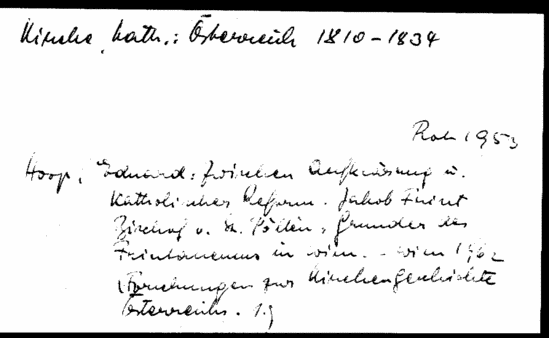 Kirche, kath.: Österreich 1810-1834
Rok 1953
Hoop, Eduard: Zwischen Aufklärung u.
Katholischer Reform. Jakob Frint
Bischof v. St. Pölten, Gründer des
Frintaneums in Wien. - Wien 1962
(Forschungen zur Kirchengeschichte
Österreichs. 1.)